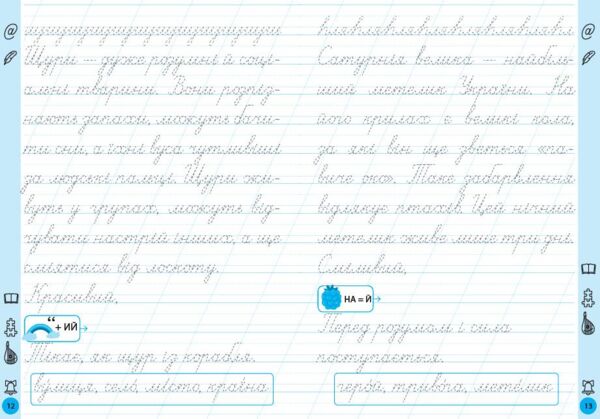 Щури – дуже розумні й соці-
альні тварини. Вони розпіз-
нають запахи, можуть бачи-
ти сни, а їхні вуса чутливіші
за людські пальці. Щури жи-
вуть у групах, можуть від-
чувати настрій інших, а ще
сміятися від лоскоту.
Красивий,
“ + ИЙ
Тікає, як щур із корабля.
ву́лиця, село́, мі́сто, краї́на
12
Сатурнія велика – найбіль-
ший метелик України. На
його крилах є великі кола,
за які він ще зветься «па-
виче око». Таке забарвлення
відлякує птахів. Цей нічний
метелик живе лише три дні.
Сміливий,
НА = Й
Перед розумом і сила
поступається.
геро́й, триво́га, мете́лик
13